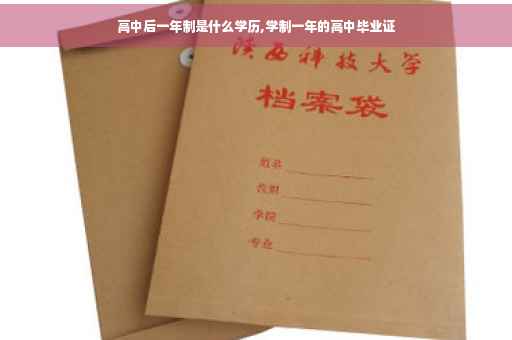 高中后一年制是什么学历,学制一年的高中毕业证
陕西科技大学
档案袋
姓名
学院
专业